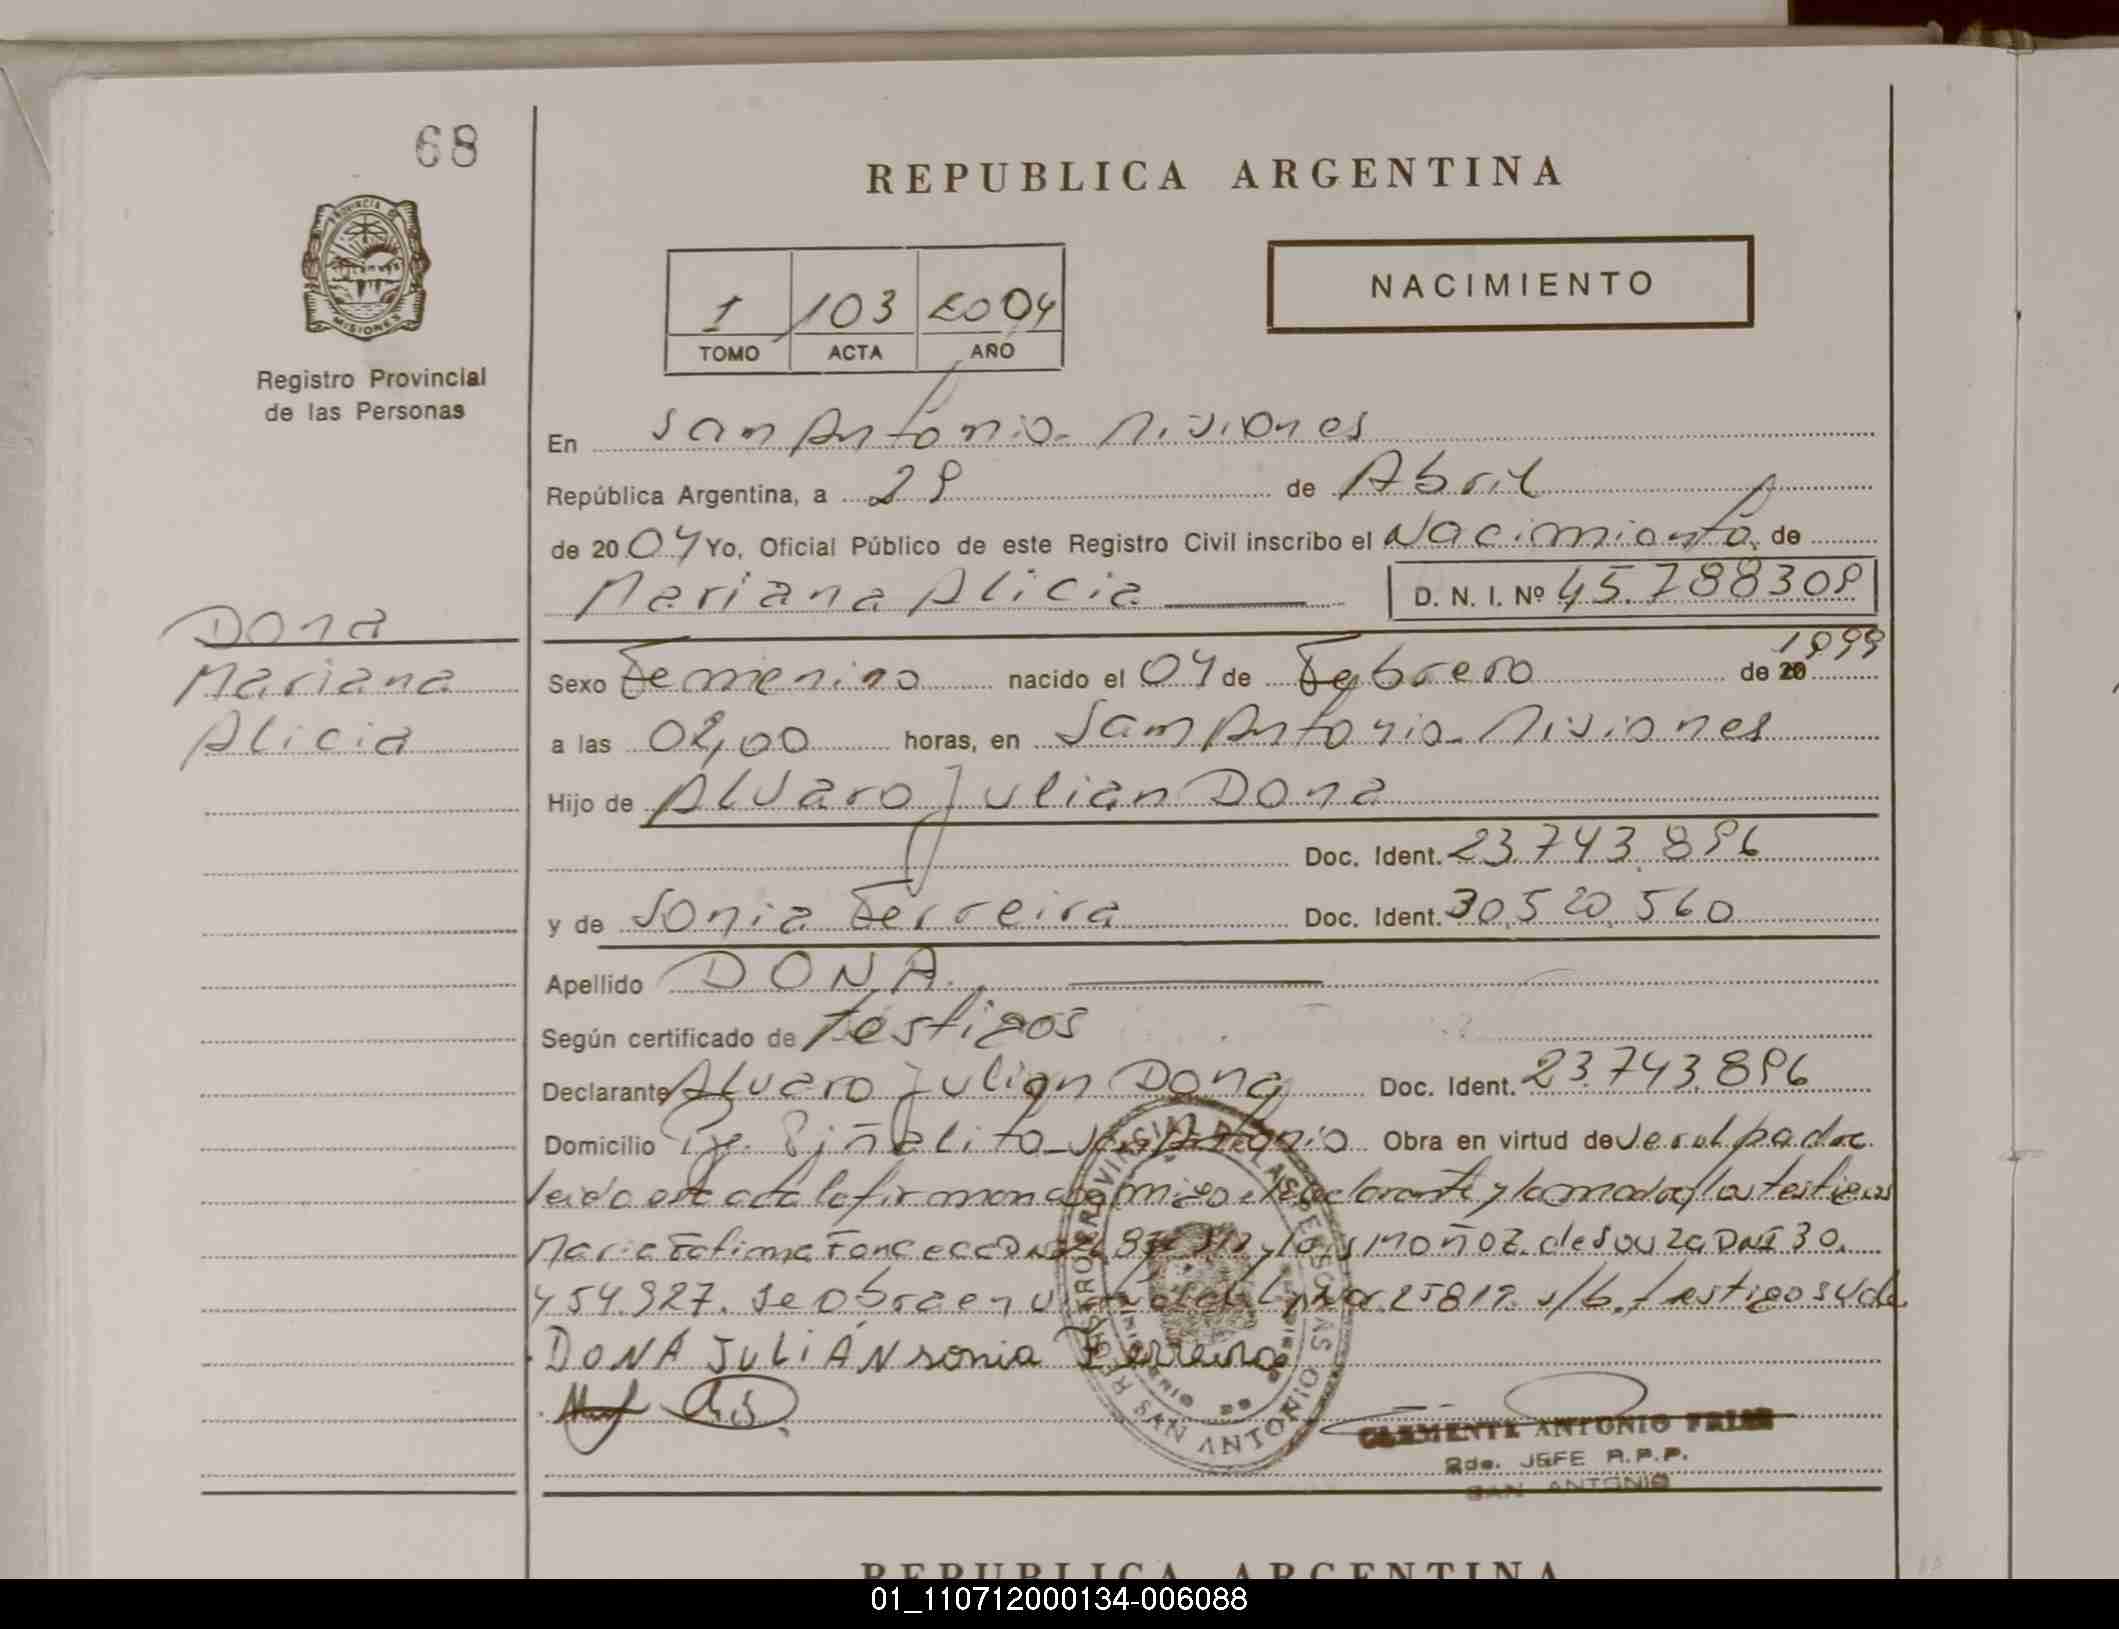 68
REPUBLICA ARGENTINA
PROVINCIA DE
MISIONES
Registro Provincial
de las Personas
1 103 2004
TOMO ACTA AÑO
NACIMIENTO
En San Antonio - Misiones
República Argentina, a 29 de Abril
de 2004 Yo, Oficial Público de este Registro Civil inscribo el Nacimiento de
Mariana Alicia D. N. I. Nº 45.788309
Dona
Mariana
Alicia
Sexo Femenino nacido el 04 de Febrero de 20 1999
a las 02,00 horas, en San Antonio - Misiones
Hijo de Alvaro Julian Dona
Doc. Ident. 23.743.896
y de Sonia Ferreira Doc. Ident. 30.520.560
Apellido DONA
Según certificado de testigos
Declarante Alvaro Julian Dona Doc. Ident. 23.743.896
Domicilio Pje. Piñalito - San Antonio Obra en virtud de ser el padre
leida esta acta la firman conmigo el declarante y la madre y los testigos
Maria Fatima Fonceca y Muñoz de Souza DNI 30.
454.927. se obra en 25819 s/b. testigos
DONA JULIÁN sonia Ferreira
REGISTRO PROVINCIAL DE LAS PERSONAS
SAN ANTONIO
CLEMENTE ANTONIO FRIAS
2do. JEFE R.P.P.
SAN ANTONIO
REPUBLICA ARGENTINA
01_110712000134-006088